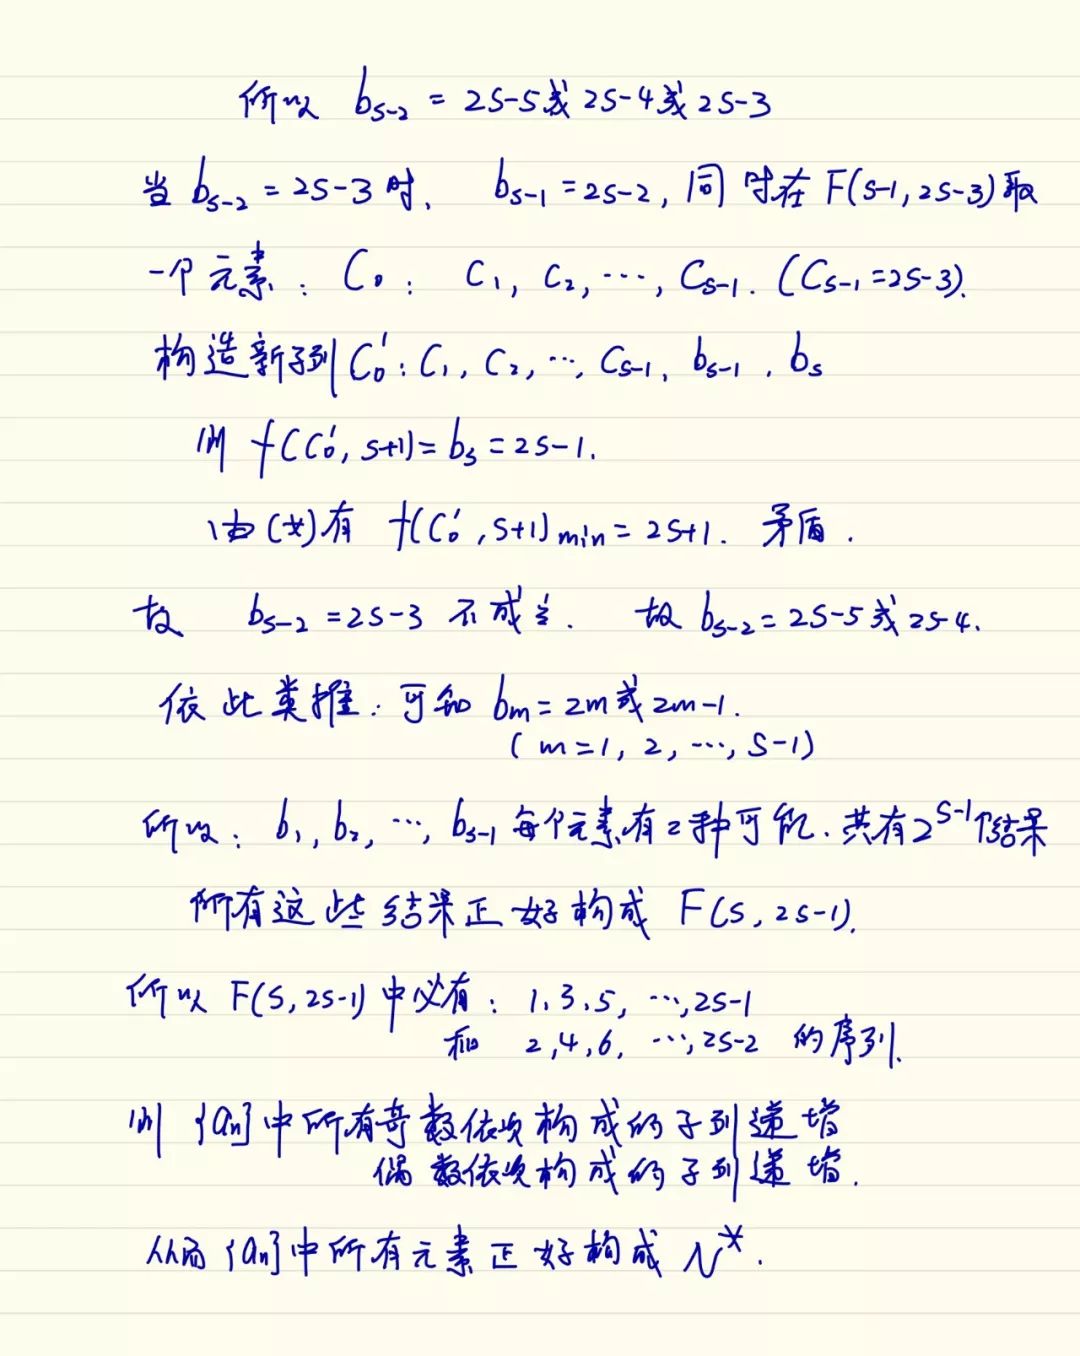 所以 b_{s-2} = 2s-5或2s-4或2s-3
当 b_{s-2} = 2s-3 时, b_{s-1} = 2s-2, 同时在 F(s-1, 2s-3) 取
一个元素: C₀: C₁, C₂, ⋯, C_{s-1}. (C_{s-1} = 2s-3).
构造新子列 C₀': C₁, C₂, ⋯, C_{s-1}, b_{s-1}, b_s
则 f(C₀', s+1) = b_s = 2s-1.
由(*)有 f(C₀', s+1)_{min} = 2s+1. 矛盾.
故 b_{s-2} = 2s-3 不成立. 故 b_{s-2} = 2s-5 或 2s-4.
依此类推: 可知 b_m = 2m或2m-1.
(m=1, 2, ⋯, s-1)
所以: b₁, b₂, ⋯, b_{s-1} 每个元素有2种可能. 共有2^{s-1}个结果
所有这些结果正好构成 F(s, 2s-1).
所以 F(s, 2s-1) 中必有: 1, 3, 5, ⋯, 2s-1
和 2, 4, 6, ⋯, 2s-2 的序列.
则 {a_n} 中所有奇数依次构成的子列递增
偶数依次构成的子列递增.
从而 {a_n} 中所有元素正好构成 N*.